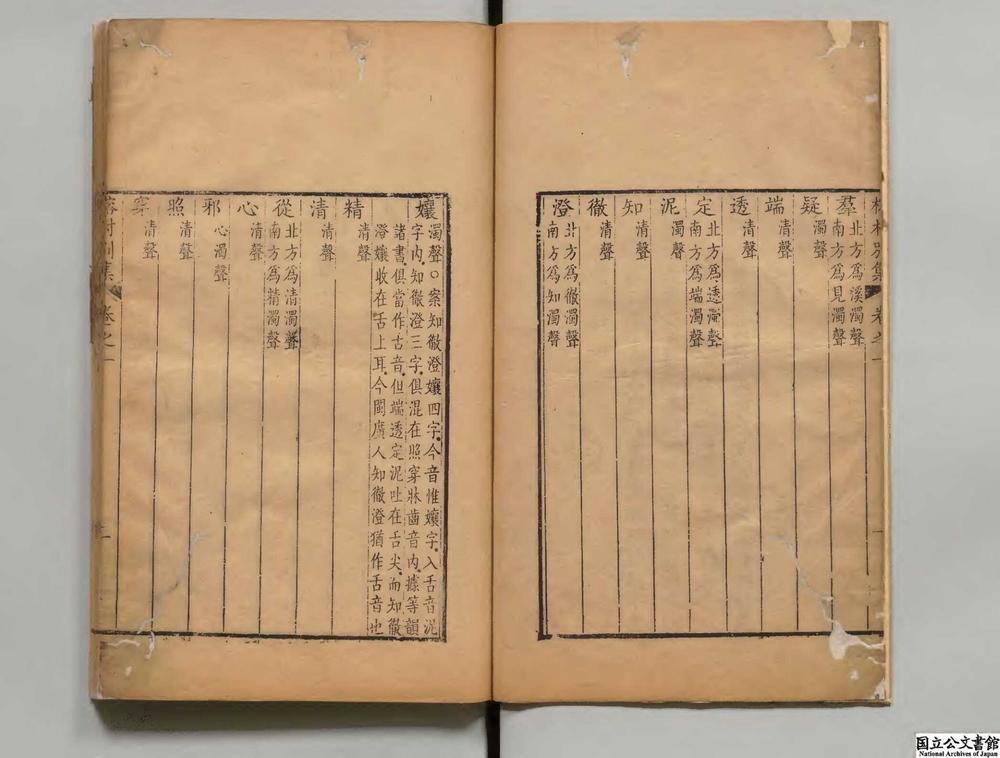 榕村別集 卷之一 一
羣 北方為溪濁聲
南方為見濁聲
疑 濁聲
端 清聲
透 清聲
定 北方為透濁聲
南方為端濁聲
泥 濁聲
知 清聲
徹 清聲
澄 北方為徹濁聲
南方為知濁聲
孃 濁聲○案知徹澄孃四字今音惟孃字入舌音泥
字內知徹澄三字俱混在照穿牀齒音內據等韻
諸書俱當作古音但端透定泥吐在舌尖而知徹
澄孃收在舌上耳今閩廣人知徹澄猶作舌音也
精 清聲
清 清聲
從 北方為清濁聲
南方為精濁聲
心 清聲
邪 心濁聲
照 清聲
穿 清聲
榕村別集 卷之一 二
国立公文書館
National Archives of Japan